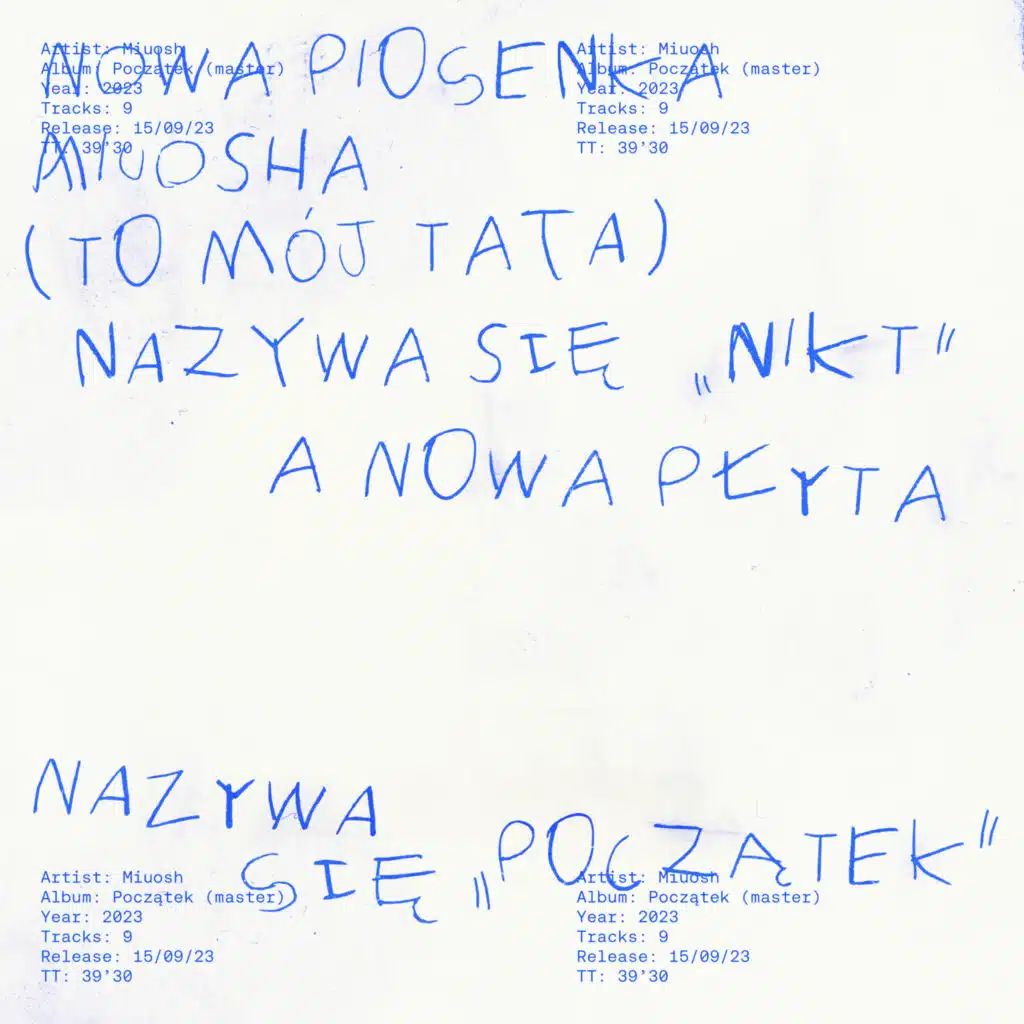 NOWA PIOSENKA
Artist: Miuosh
Album: Początek (master)
Year: 2023
Tracks: 9
Release: 15/09/23
TT: 39’30
Artist: Miuosh
Album: Początek (master)
Year: 2023
Tracks: 9
Release: 15/09/23
TT: 39’30
MIUOSHA
(TO MÓJ TATA)
NAZYWA SIĘ „NIKT”
A NOWA PŁYTA
NAZYWA
SIĘ „POCZĄTEK”
Artist: Miuosh
Album: Początek (master)
Year: 2023
Tracks: 9
Release: 15/09/23
TT: 39’30
Artist: Miuosh
Album: Początek (master)
Year: 2023
Tracks: 9
Release: 15/09/23
TT: 39’30